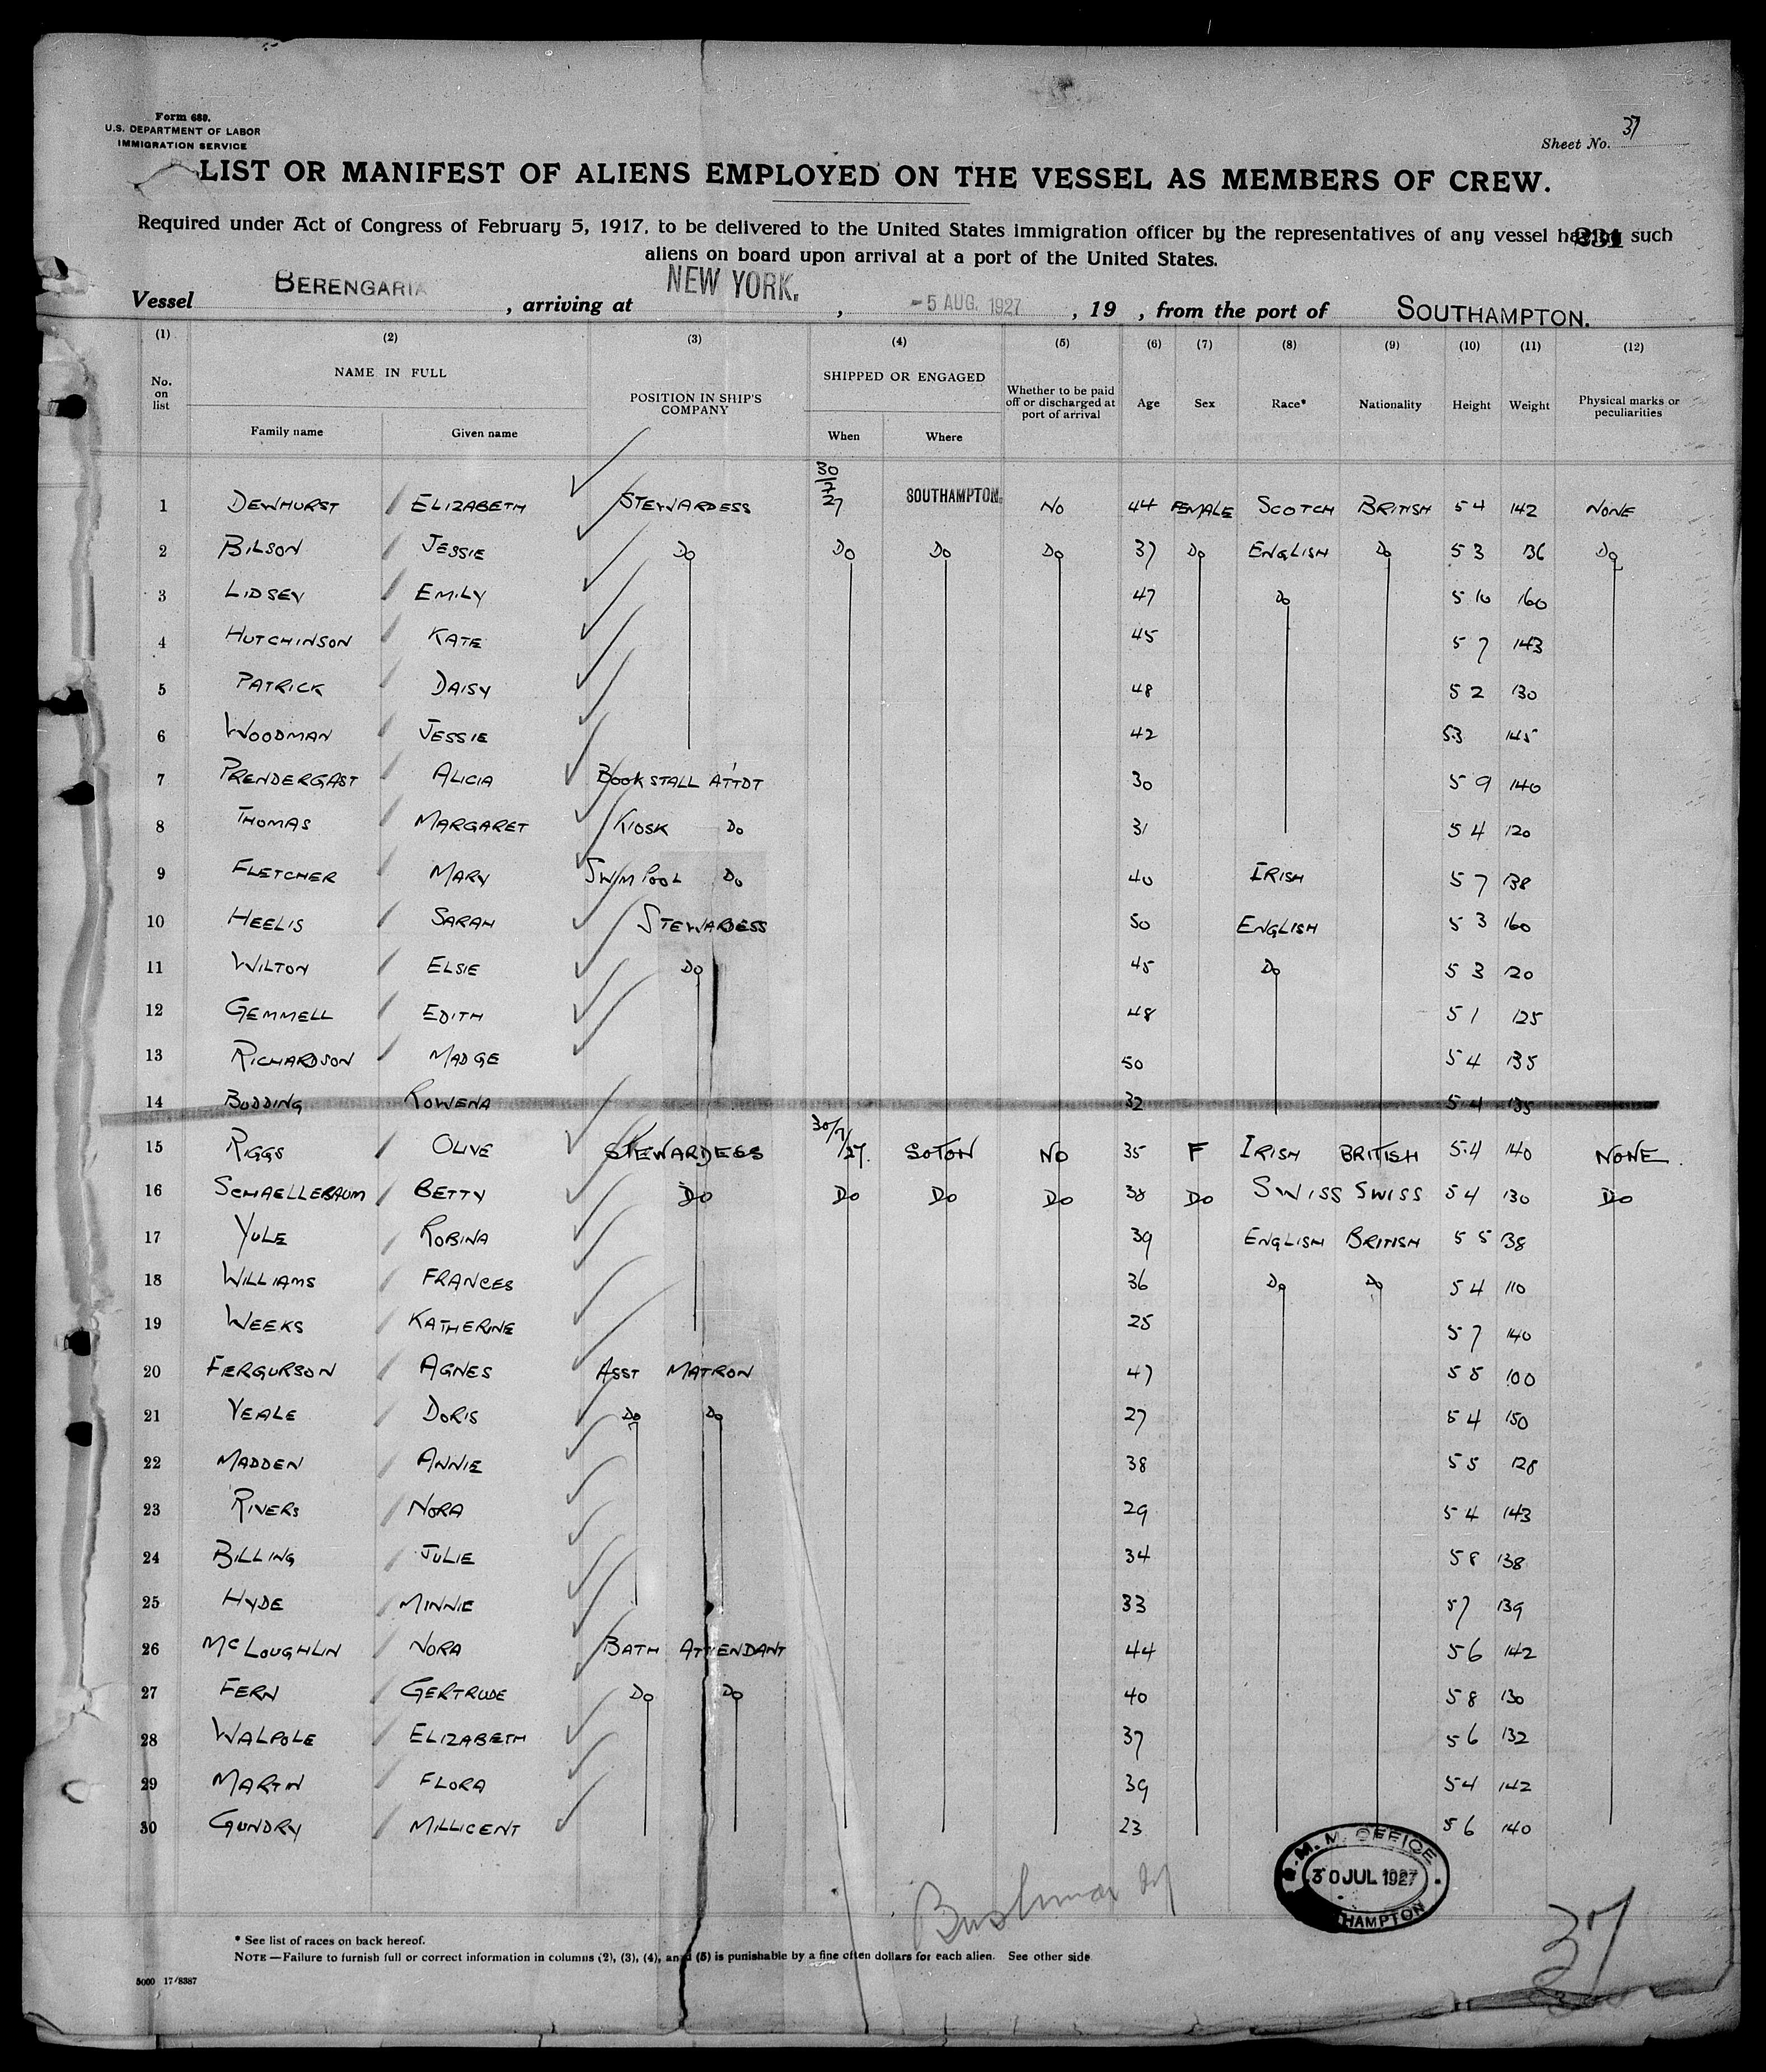 Form 689.
U.S. DEPARTMENT OF LABOR
IMMIGRATION SERVICE
Sheet No. 37
LIST OR MANIFEST OF ALIENS EMPLOYED ON THE VESSEL AS MEMBERS OF CREW.
Required under Act of Congress of February 5, 1917, to be delivered to the United States immigration officer by the representatives of any vessel having such
aliens on board upon arrival at a port of the United States.
Vessel BERENGARIA, arriving at NEW YORK., -5 AUG. 1927, 19 , from the port of SOUTHAMPTON.
(1) (2) (3) (4) (5) (6) (7) (8) (9) (10) (11) (12)
No. on list NAME IN FULL POSITION IN SHIP'S COMPANY SHIPPED OR ENGAGED Whether to be paid off or discharged at port of arrival Age Sex Race* Nationality Height Weight Physical marks or peculiarities
Family name Given name When Where
1 DEWHURST ELIZABETH STEWARDESS 30/7/27 SOUTHAMPTON. NO 44 FEMALE SCOTCH BRITISH 5 4 142 NONE
2 BILSON JESSIE DO DO DO DO 37 DO ENGLISH DO 5 3 136 DO
3 LIDSEY EMILY 47 DO 5 10 160
4 HUTCHINSON KATE 45 5 7 143
5 PATRICK DAISY 48 5 2 130
6 WOODMAN JESSIE 42 5 3 145
7 PRENDERGAST ALICIA BOOKSTALL ATTDT 30 5 9 140
8 THOMAS MARGARET KIOSK DO 31 5 4 120
9 FLETCHER MARY SWIM POOL DO 40 IRISH 5 7 138
10 HEELIS SARAH STEWARDESS 50 ENGLISH 5 3 160
11 WILTON ELSIE DO 45 DO 5 3 120
12 GEMMELL EDITH 48 5 1 125
13 RICHARDSON MADGE 50 5 4 135
14 BUDDING ROWENA 32 5 4 135
15 RIGGS OLIVE STEWARDESS 30/7/27. SOTON NO 35 F IRISH BRITISH 5.4 140 NONE.
16 SCHAELLEBAUM BETTY DO DO DO DO 38 DO SWISS SWISS 5 4 130 DO
17 YULE ROBINA 39 ENGLISH BRITISH 5 5 138
18 WILLIAMS FRANCES 36 DO DO 5 4 110
19 WEEKS KATHERINE 25 5 7 140
20 FERGURSON AGNES ASST MATRON 47 5 5 100
21 VEALE DORIS DO DO 27 5 4 150
22 MADDEN ANNIE 38 5 5 128
23 RIVERS NORA 29 5 4 143
24 BILLING JULIE 34 5 8 138
25 HYDE MINNIE 33 5 7 139
26 MCLOUGHLIN NORA BATH ATTENDANT 44 5 6 142
27 FERN GERTRUDE DO DO 40 5 8 130
28 WALPOLE ELIZABETH 37 5 6 132
29 MARTIN FLORA 39 5 4 142
30 GUNDRY MILLICENT 23 5 6 140
M.M. OFFICE
30 JUL 1927
HAMPTON
37
* See list of races on back hereof.
NOTE—Failure to furnish full or correct information in columns (2), (3), (4), and (5) is punishable by a fine of ten dollars for each alien. See other side
5000 17/8387